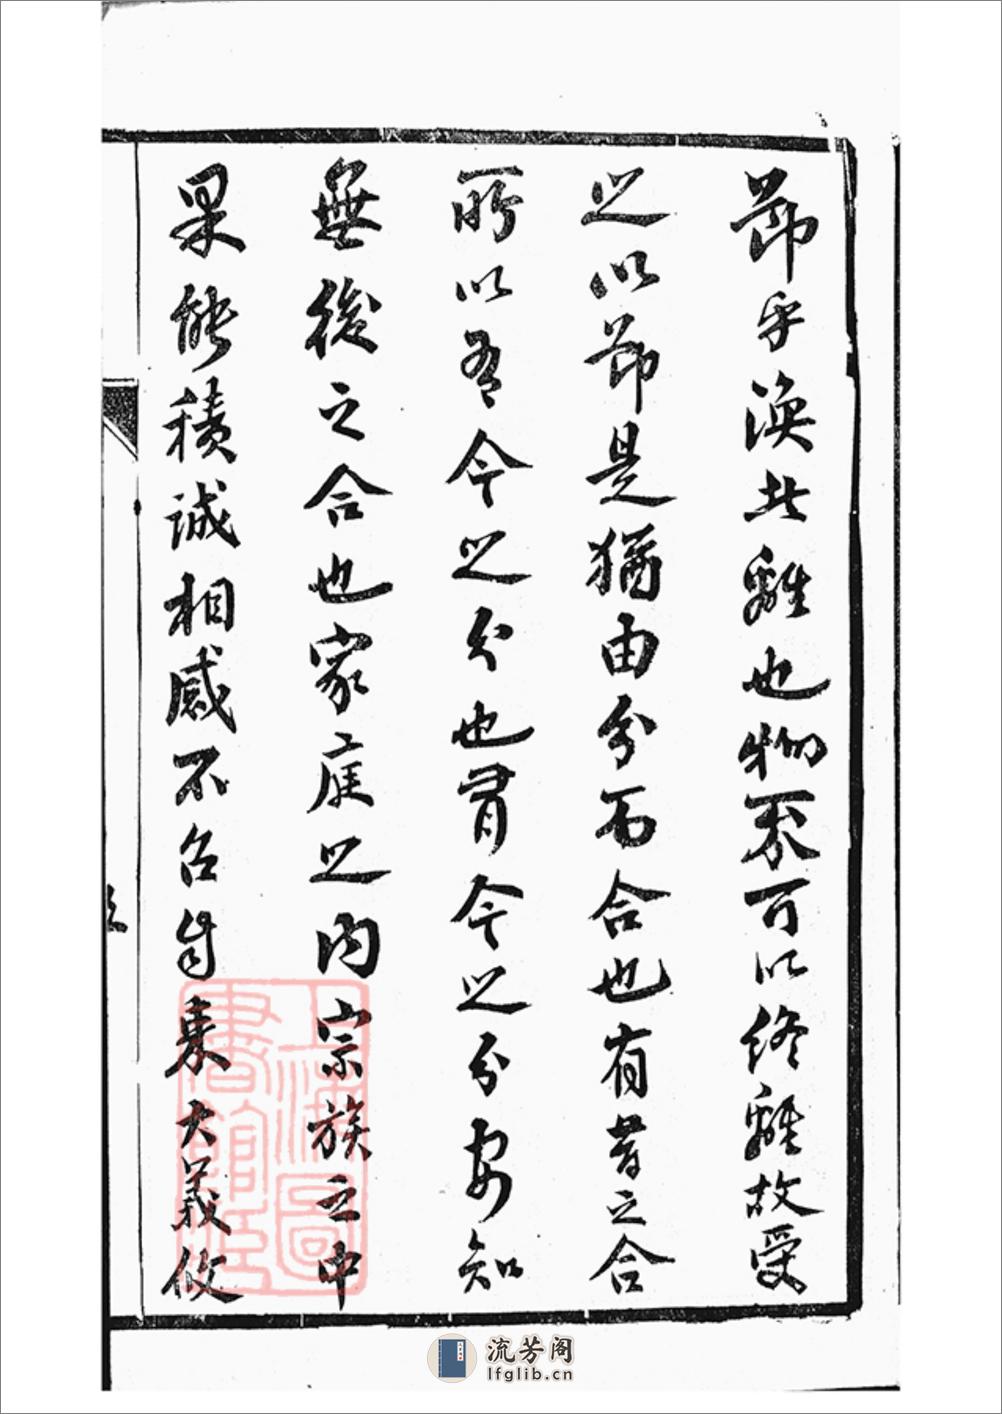 節乎渙者離也物不可以終離故受
之以節是猶由分而合也有昔之合
所以有今之分也有今之分安知
無後之合也家庭之內宗族之中
果能積誠相感不召自來大義攸
上海圖書館藏
流芳阁
lfglib.cn